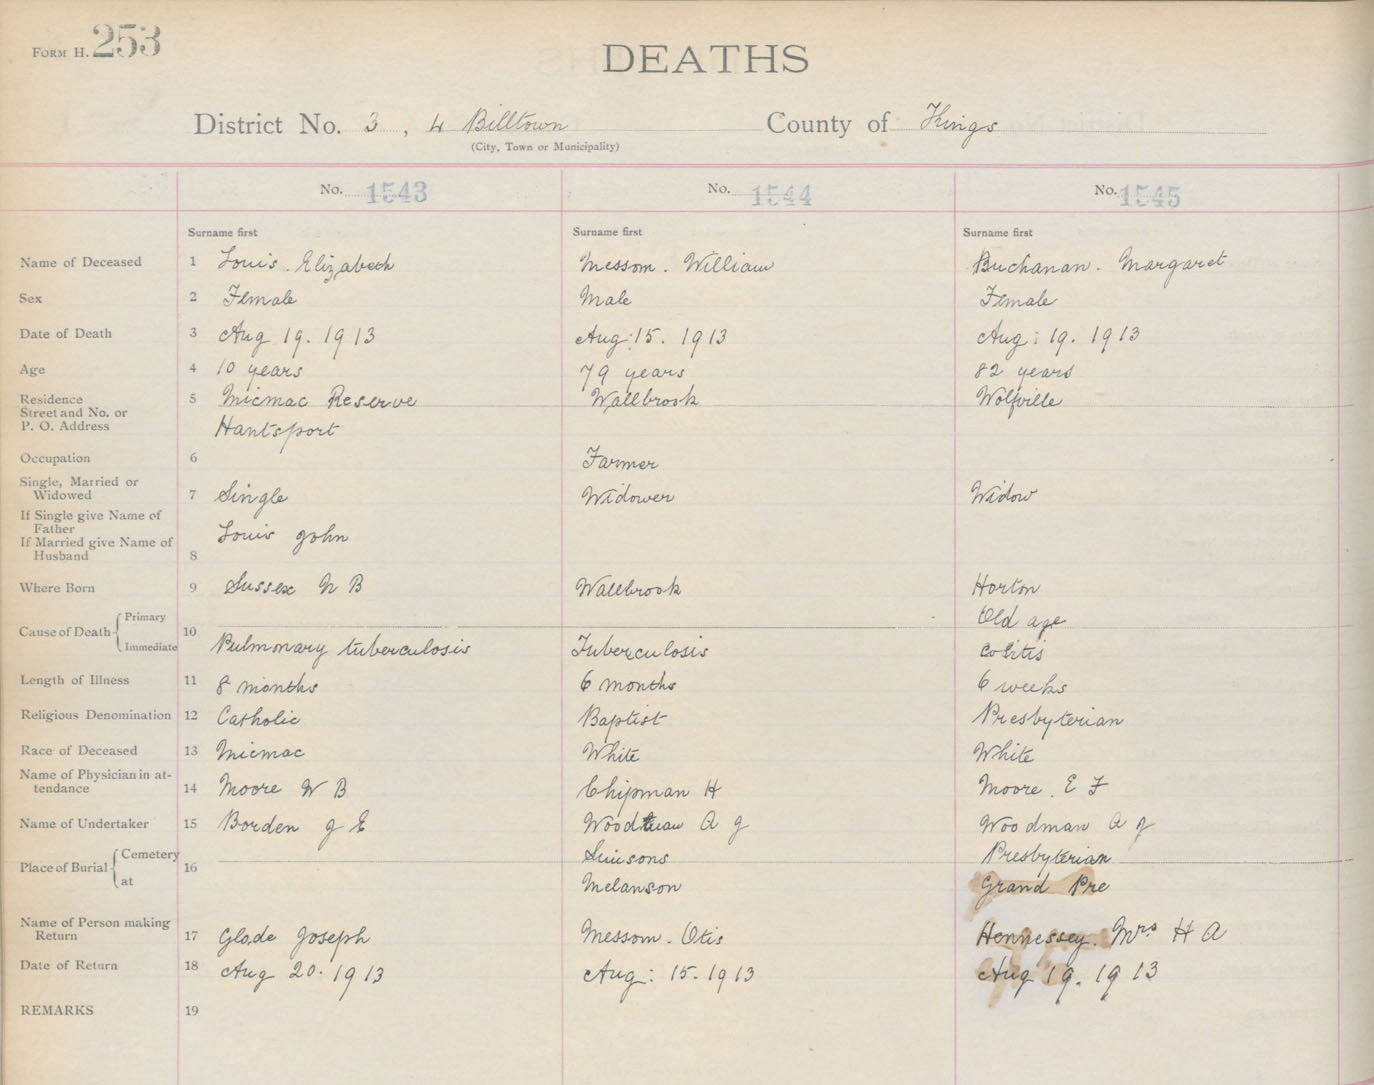 FORM H. 253
DEATHS
District No. 3, 4 Billtown County of Kings
(City, Town or Municipality)
No. 1543 No. 1544 No. 1545
Surname first Surname first Surname first
Name of Deceased 1 Louis. Elizabeth Messom. William Buchanan. Margaret
Sex 2 Female Male Female
Date of Death 3 Aug 19. 1913 Aug: 15. 1913 Aug: 19. 1913
Age 4 10 years 79 years 82 years
Residence 5 Micmac Reserve Wallbrook Wolfville
Street and No. or
P. O. Address Hantsport
Occupation 6 Farmer
Single, Married or
Widowed 7 Single Widower Widow
If Single give Name of
Father
If Married give Name of Louis John
Husband 8
Where Born 9 Sussex N B Wallbrook Horton
Cause of Death 10 Primary Old age
Immediate Pulmonary tuberculosis Tuberculosis Colitis
Length of Illness 11 8 months 6 months 6 weeks
Religious Denomination 12 Catholic Baptist Presbyterian
Race of Deceased 13 Micmac White White
Name of Physician in at-
tendance 14 Moore W B Chipman H Moore. E F
Name of Undertaker 15 Borden G E Woodman A J Woodman A J
Place of Burial 16 Cemetery Simsons Presbyterian
at Melanson Grand Pre
Name of Person making
Return 17 Glode Joseph Messom. Otis Hennessey. Mrs H A
Date of Return 18 Aug 20. 1913 Aug: 15. 1913 Aug 19. 1913
REMARKS 19